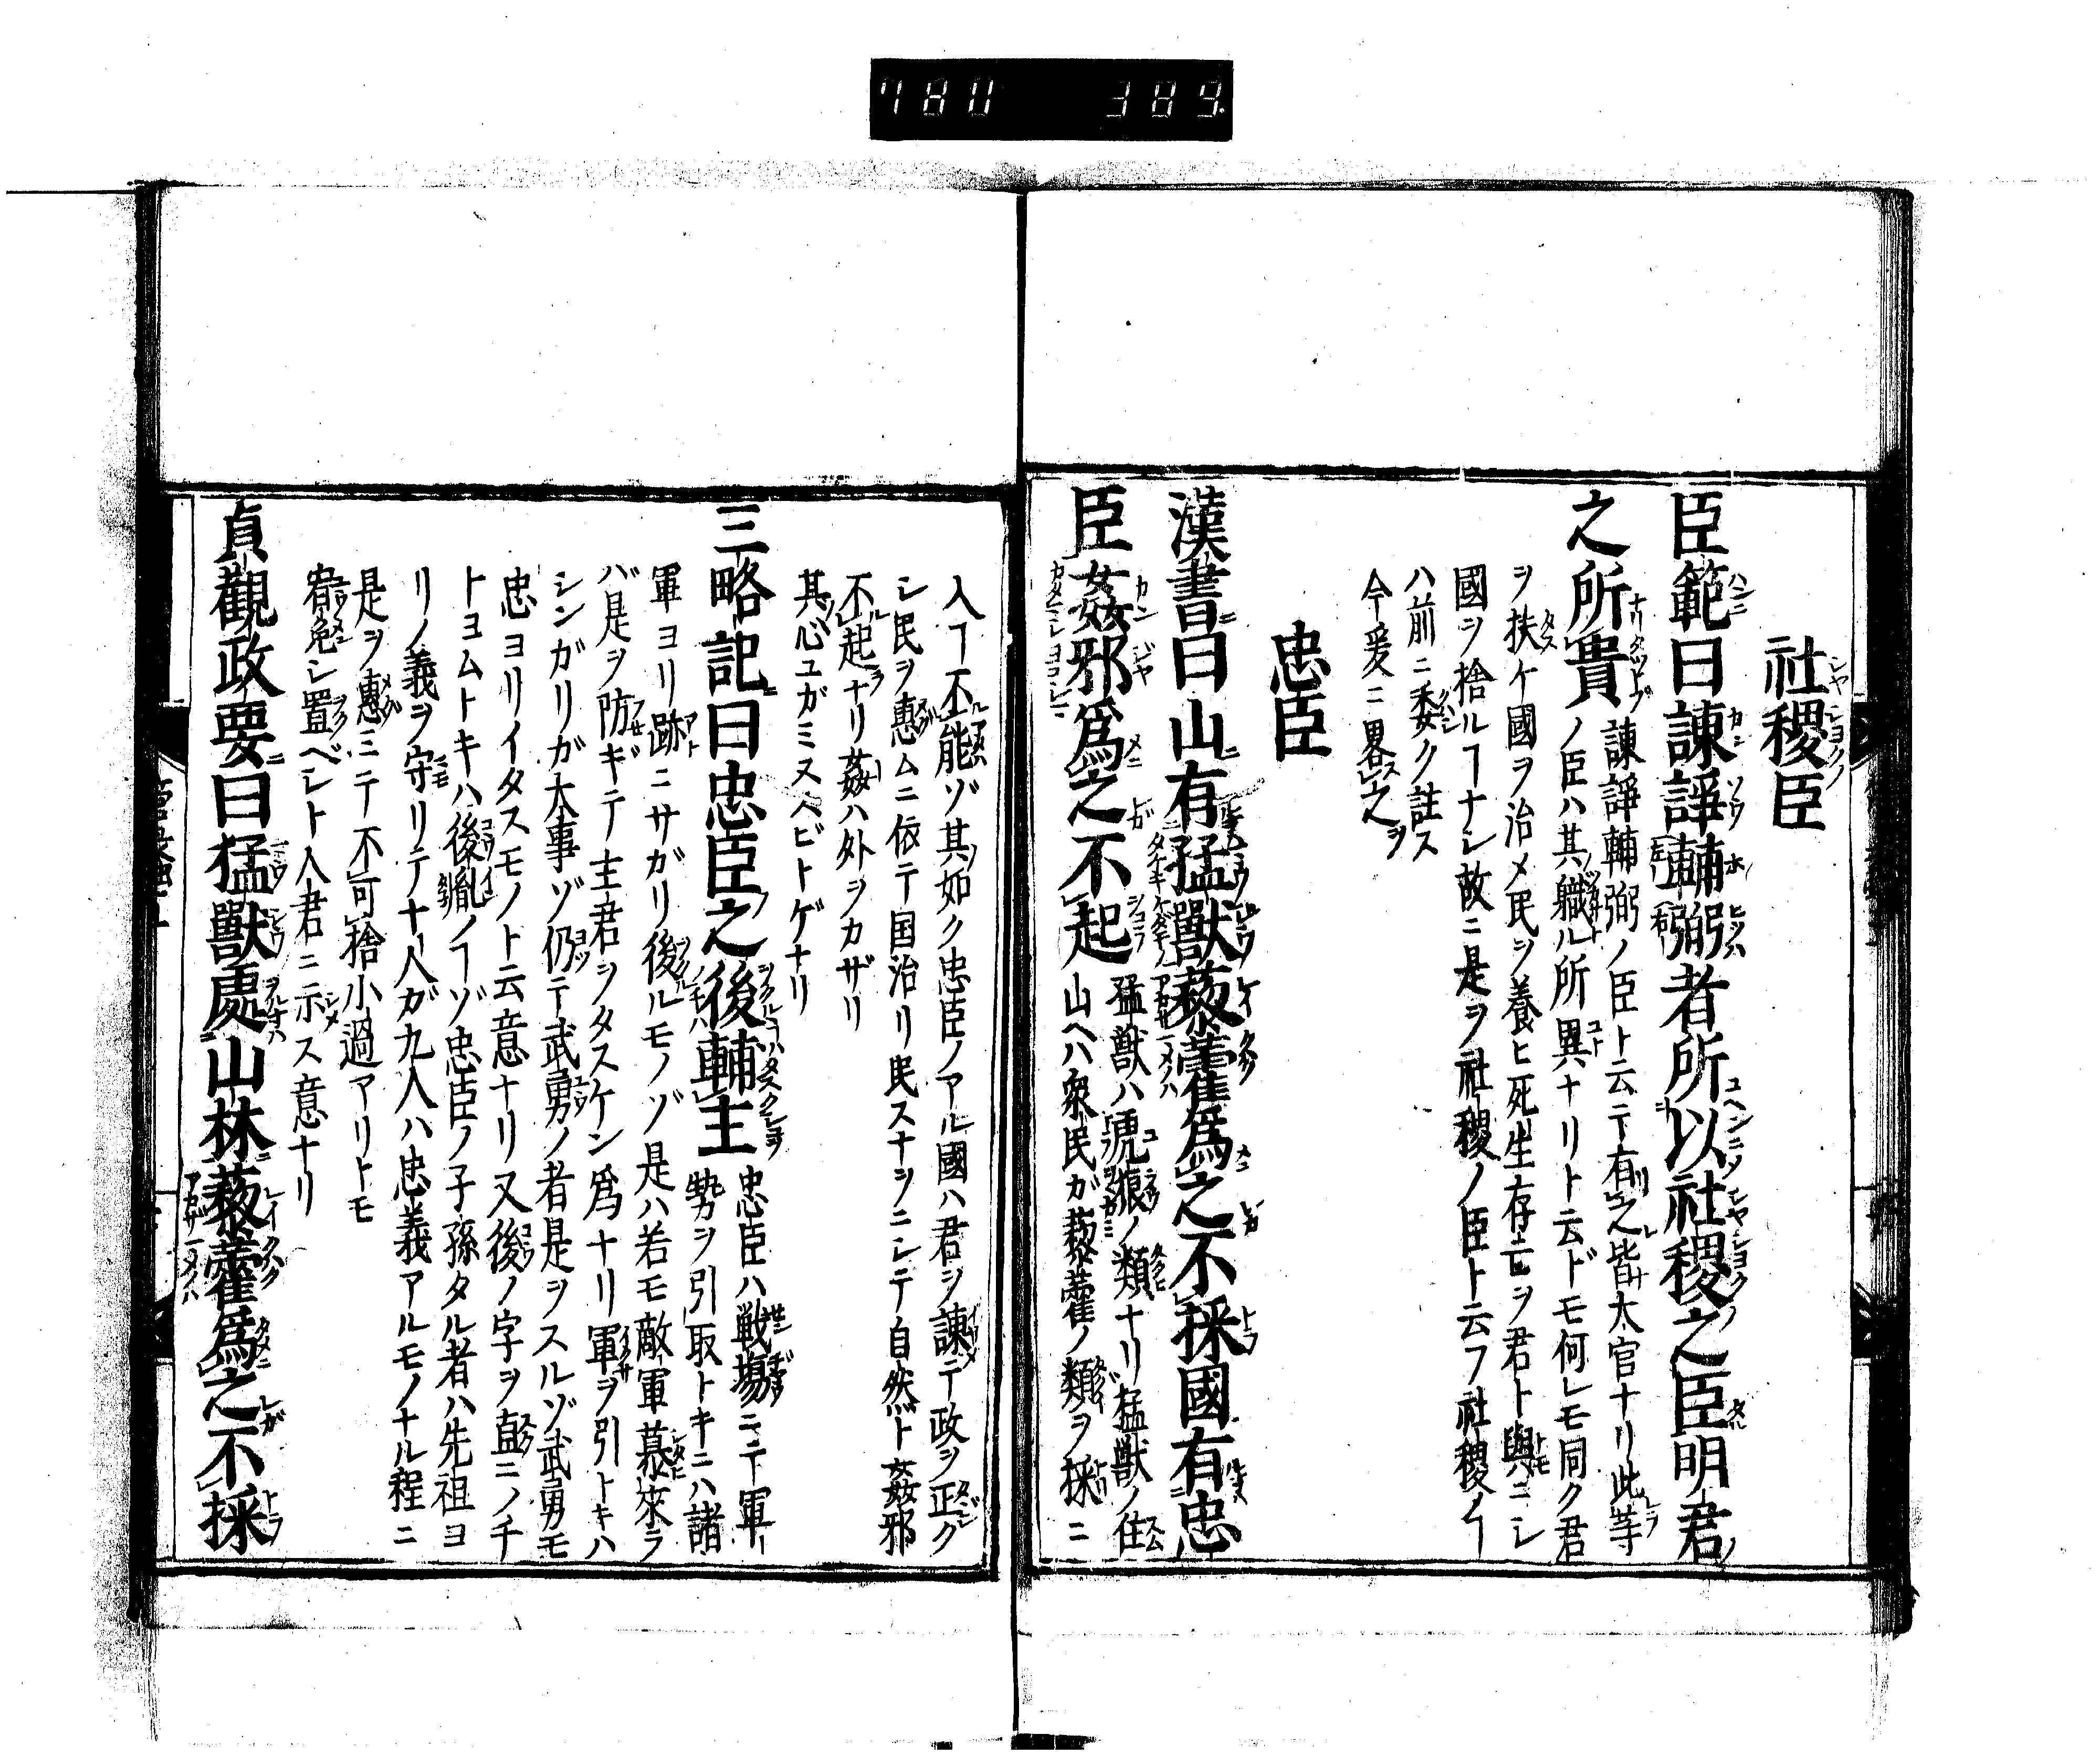 780 389
社稷臣
臣範曰諫諍輔弼者所以社稷之臣明君
之所貴
諫諍輔弼ノ臣ト云テ有之皆大官ナリ此等
ノ臣ハ其職ル所異ナリト云ドモ何レモ同ク君
ヲ扶ケ國ヲ治メ民ヲ養ヒ死生存亡ヲ君ト與ニシ
國ヲ捨ルヿナシ故ニ是ヲ社稷ノ臣ト云フ社稷ノヿ
ハ前ニ委ク註ス
今爰ニ畧之ヲ
忠臣
漢書曰山有猛獸藜藿爲之不採國有忠
臣姦邪爲之不起
猛獣ハ虎狼ノ類ナリ猛獣ノ住
山ヘハ衆民ガ藜藿ノ類ヲ採ニ
入ヿ不能ゾ其如ク忠臣ノアル國ハ君ヲ諫テ政ヲ正ク
シ民ヲ惠ムニ依テ国治リ民スナヲニシテ自然ト姦邪
不起ナリ姦ハ外ヲカザリ
其心ユガミスヘビトゲナリ
三略記曰忠臣之後輔主
忠臣ハ戦場ニテ軍
勢ヲ引取トキニハ諸
軍ヨリ跡ニサガリ後ルモノゾ是ハ若モ敵軍慕來ラ
バ是ヲ防ギテ主君ヲタスケン爲ナリ軍ヲ引トキハ
シンガリガ大事ゾ仍テ武勇ノ者是ヲスルゾ武勇モ
忠ヨリイタスモノト云意ナリ又後ノ字ヲ直ニノチ
トヨムトキハ後胤ノヿゾ忠臣ノ子孫タル者ハ先祖ヨ
リノ義ヲ守リテ十人ガ九人ハ忠義アルモノナル程ニ
是ヲ惠ミテ不可捨小過アリトモ
宥免シ置ベシト人君ニ示ス意ナリ
貞觀政要曰猛獸處山林藜藿爲之不採